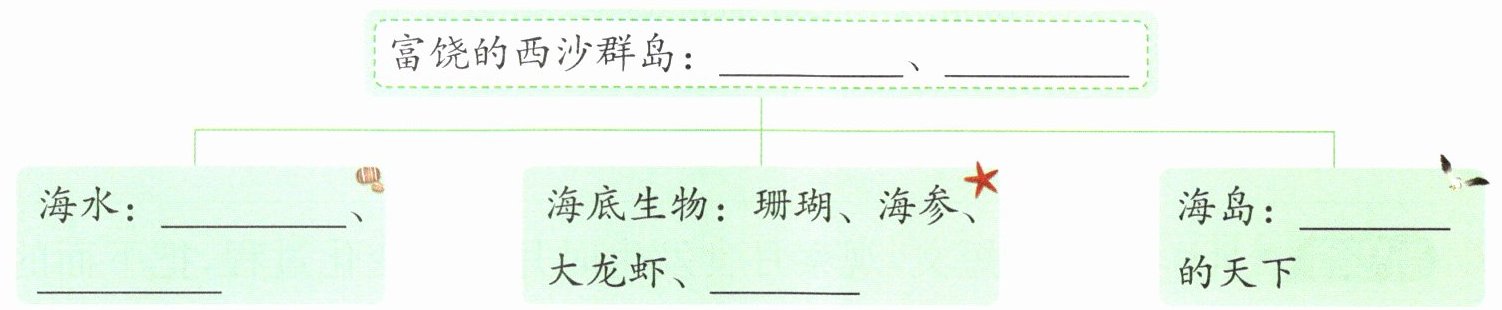 富饶的西沙群岛：________、________
海水：________、
________
海底生物：珊瑚、海参、
大龙虾、______
海岛：______
的天下